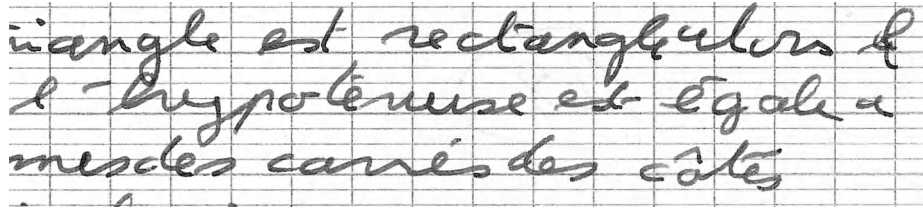 riangle est rectangle alors l
l'hypoténuse est égale a
mes des carrés des côtés